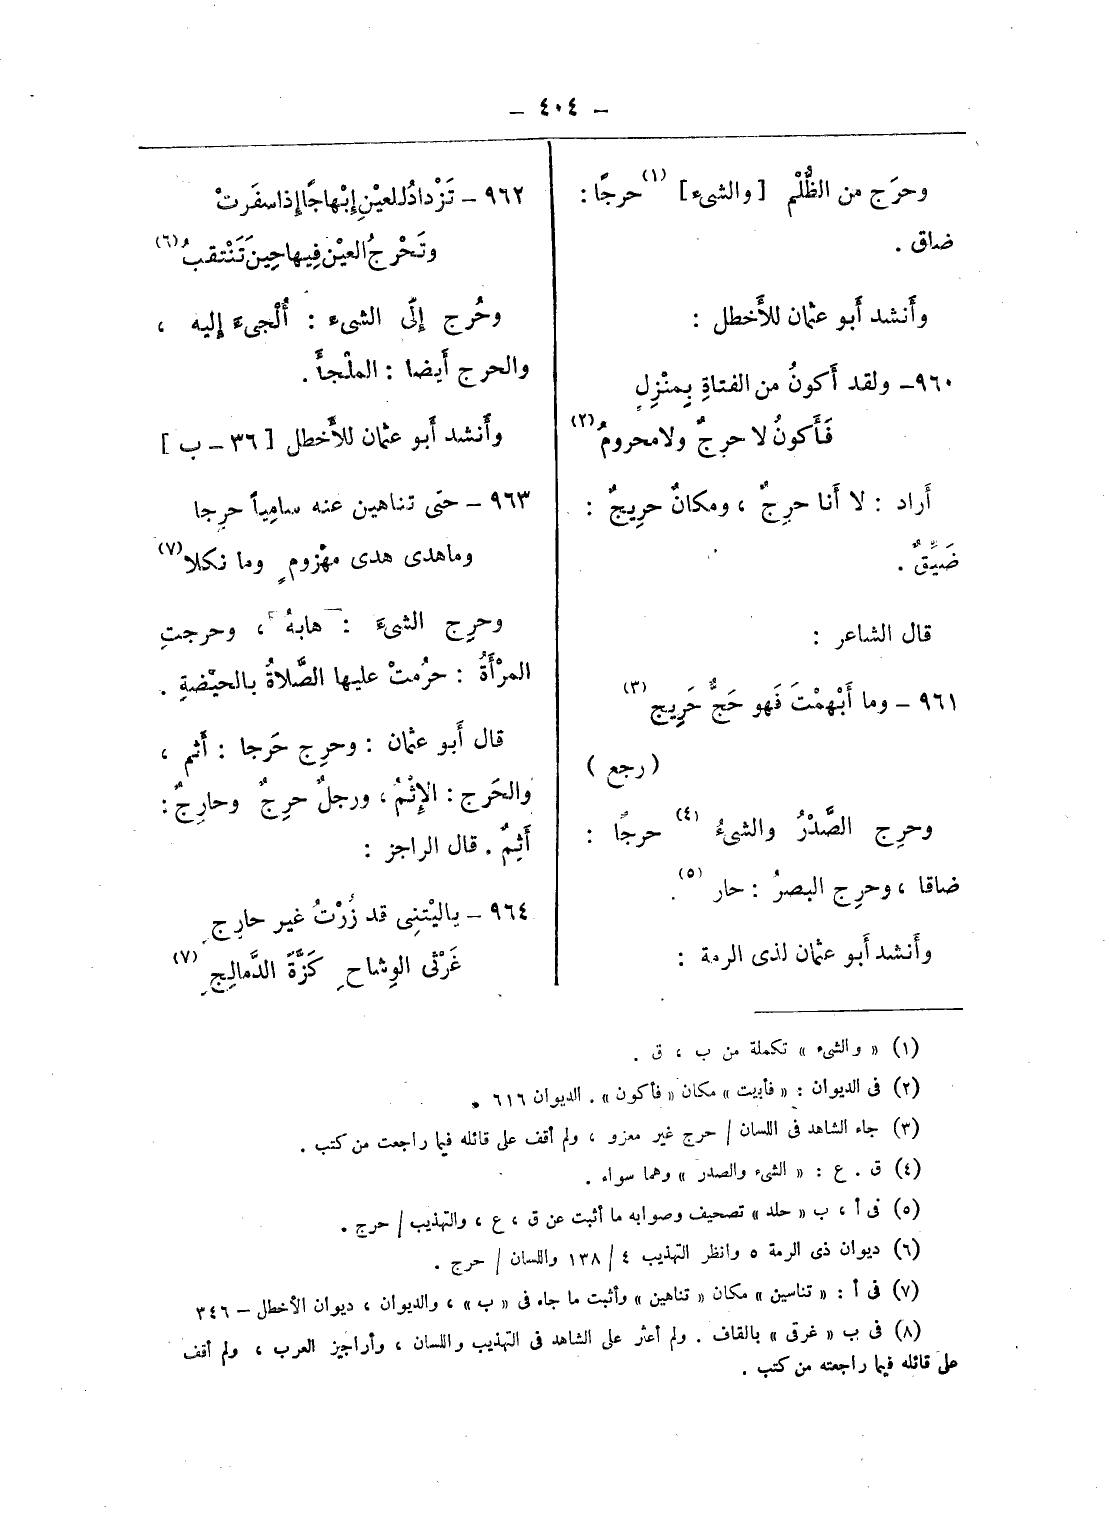 – ٤٠٤ –
وحرَج من الظُّلْم [ والشيء ] (١) حرجًا :
ضاق .
وأَنشد أَبو عثمان للأَخطل :
٩٦٠– ولقد أَكونُ من الفتاةِ بِمنْزِلٍ
فَأَكونُ لا حرِجٌ ولا محرومُ (٢)
أَراد : لا أَنا حرِجٌ ، ومكانٌ حرِيجٌ :
ضَيِّقٌ .
قال الشاعر :
٩٦١ – وما أَبْهمْتَ فَهو حَجٌّ حَرِيج (٣)
( رجع )
وحرِج الصَّدْرُ والشيءُ (٤) حرجًا :
ضاقا ، وحرِج البصرُ : حار (٥) .
وأَنشد أَبو عثمان لذى الرمة :
٩٦٢ – تَزْدادُ للعيْنِ إِبْهاجًا إِذا سفَرتْ
وتَحْرجُ العيْن فِيها حِينَ تَنْتقبُ (٦)
وحُرِج إِلَى الشيء : أُلْجِىءَ إِليه ،
والحرج أَيضا : الملْجأُ .
وأَنشد أَبو عثمان للأَخطل [ ٣٦ – ب ]
٩٦٣ – حتى تناهين عنه سامِياً حرِجا
وماهدى هدى مهْزومٍ وما نكلا (٧)
وحرِج الشىءَ : هابهُ ، وحرجتِ
المرْأَةُ : حرُمتْ عليها الصَّلاةُ بالحيْضةِ .
قال أَبو عثمان : وحرِج حَرجا : أَثم ،
والحَرج : الإِثْمُ ، ورجلٌ حرِجٌ وحارِجٌ :
أَثِمٌ . قال الراجز :
٩٦٤ – ياليْتنِى قد زُرْتُ غير حارِجِ
غَرْثى الوِشاحِ كَزَّةَ الدَّمالِجِ (٧)
(١) « والشىء » تكملة من ب ، ق .
(٢) فى الديوان : « فأبيت » مكان « فأكون » . الديوان ٦١٦ .
(٣) جاء الشاهد فى اللسان / حرج غير معزو ، ولم أقف على قائله فيما راجعت من كتب .
(٤) ق . ع : « الشىء والصدر » وهما سواء .
(٥) فى أ ، ب « حلد » تصحيف وصوابه ما أثبت عن ق ، ع ، والتهذيب / حرج .
(٦) ديوان ذى الرمة ٥ وانظر التهذيب ٤ / ١٣٨ واللسان / حرج .
(٧) فى أ : « تناسين » مكان « تناهين » وأثبت ما جاء فى « ب » ، والديوان ، ديوان الأخطل – ٣٤٦
(٨) فى ب « غرقى » بالقاف . ولم أعثر على الشاهد فى التهذيب واللسان ، وأراجيز العرب ، ولم أقف
على قائله فيما راجعته من كتب .